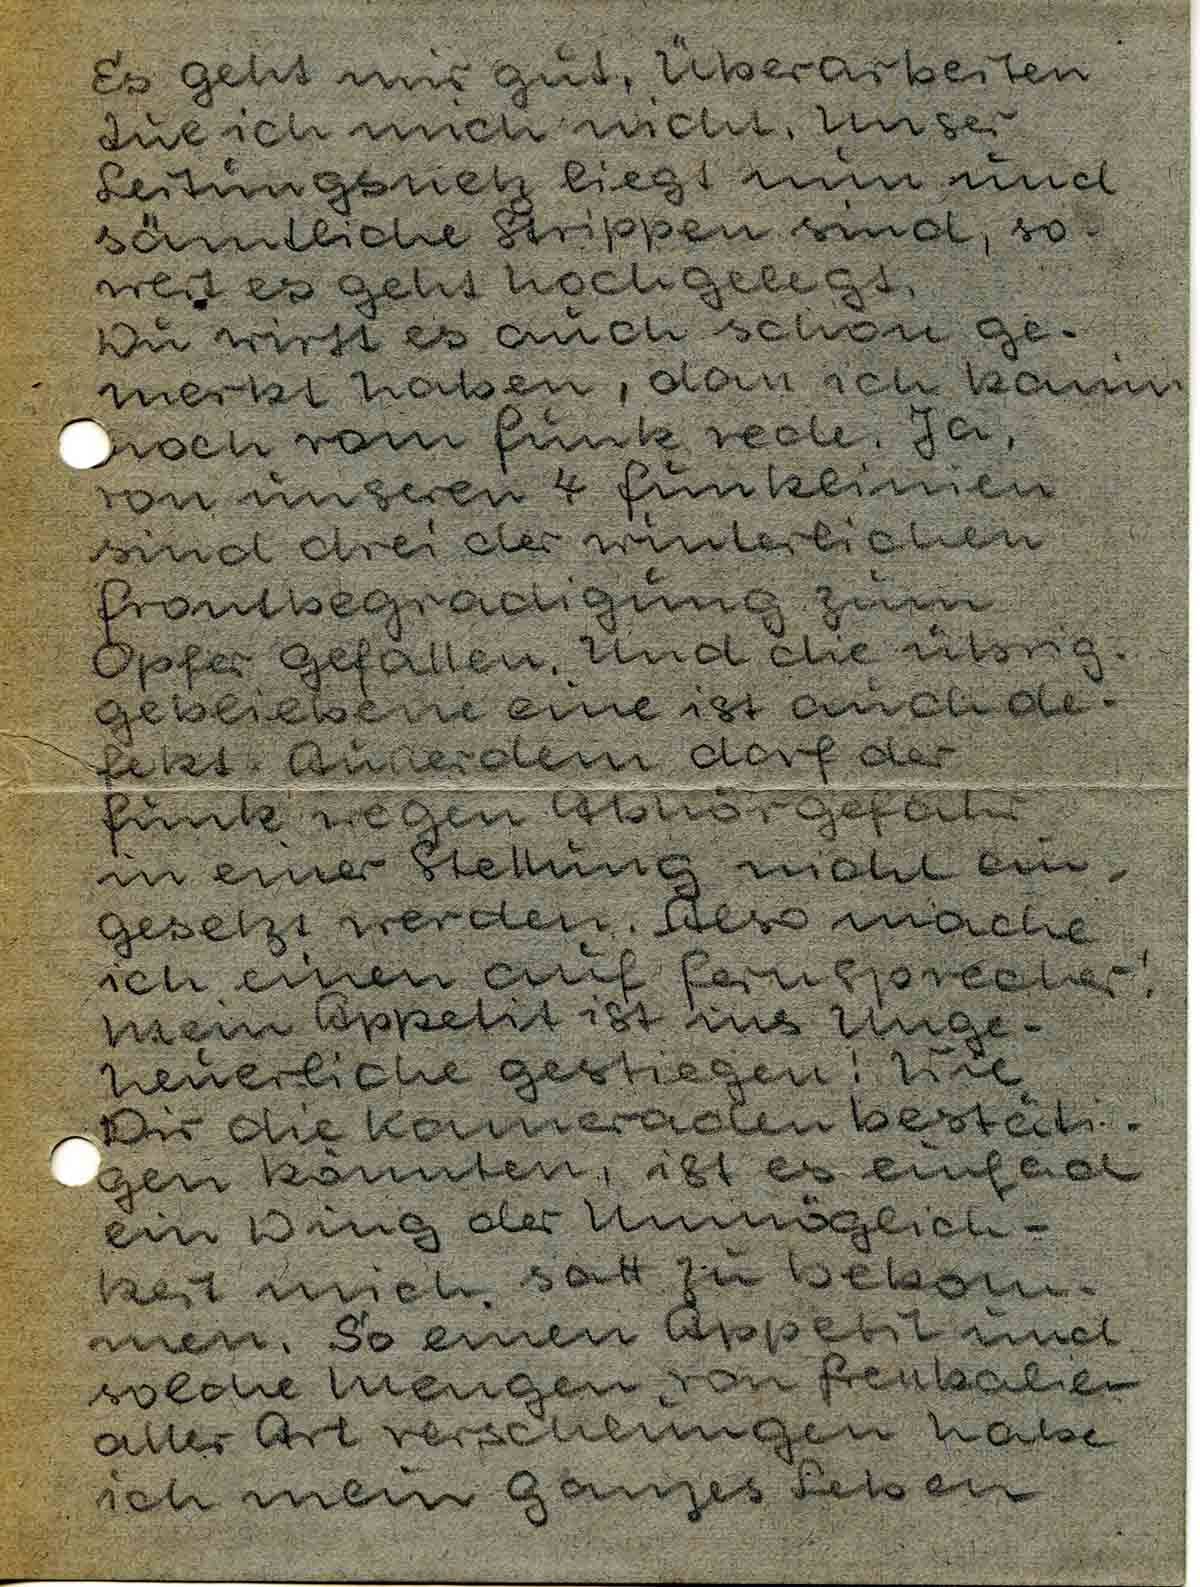 Es geht mir gut. Überarbeiten
tue ich mich nicht. Unser
Leitungsnetz liegt nun und
sämtliche Strippen sind, so-
weit es geht hochgelegt.
Du wirst es auch schon ge-
merkt haben, dass ich kaum
noch vom Funk rede. Ja,
von unseren 4 Funklinien
sind drei der winterlichen
Frontbegradigung zum
Opfer gefallen. Und die übrig-
gebliebene eine ist auch de-
fekt. Ausserdem darf der
Funk wegen Abhörgefahr
in einer Stellung nicht ein-
gesetzt werden. Also mache
ich einen auf Fernsprecher!
Mein Appetit ist ins Unge-
heuerliche gestiegen! Wie
Dir die Kameraden bestäti-
gen könnten, ist es einfach
ein Ding der Unmöglich-
keit mich satt zu bekom-
men. So einen Appetit und
solche Mengen von Fressalien
aller Art verschlungen habe
ich mein ganzes Leben